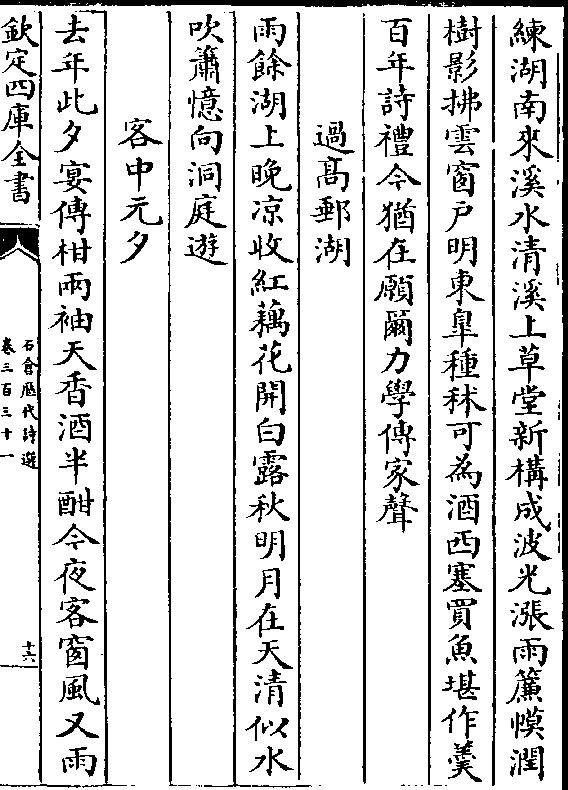 練湖南來溪水清溪上草堂新構成波光漲雨簾幙潤
樹影拂雲窗戸明東臯種秫可為酒西塞買魚堪作羮
百年詩禮今猶在願爾力學傳家聲
過髙郵湖
雨餘湖上晚凉收紅藕花開白露秋明月在天清似水
吹簫憶向洞庭遊
客中元夕
去年此夕宴傳柑兩袖天香酒半酣今夜客窗風又雨
欽定四庫全書
石倉歴代詩選
卷三百三十一
十六